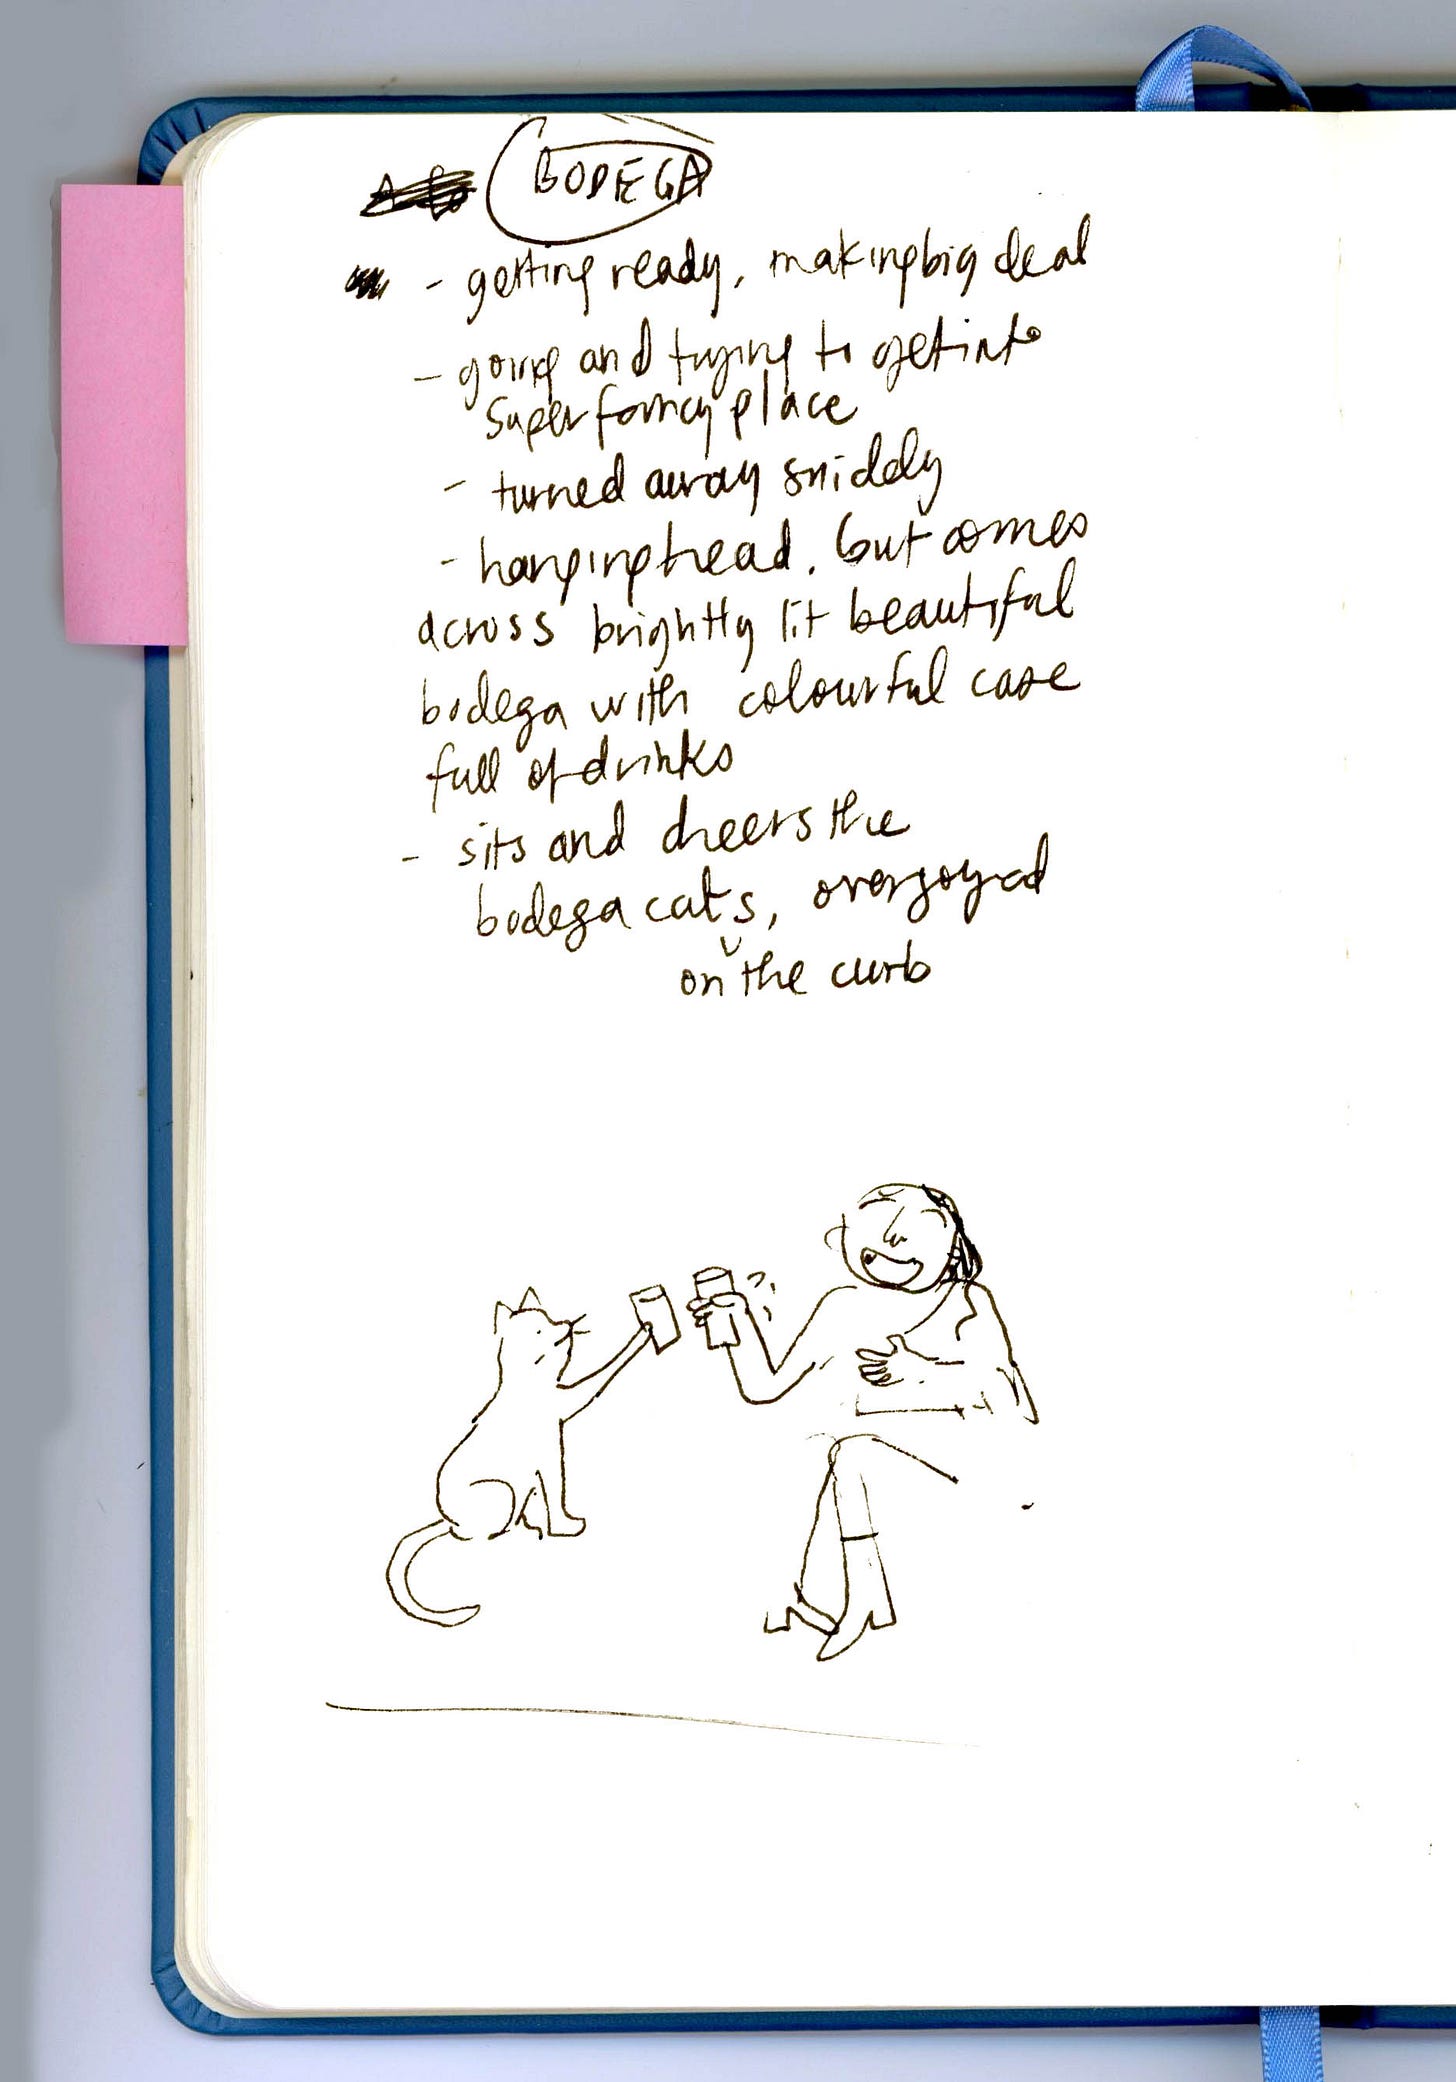 BODEGA
- getting ready, making big deal
- going and trying to get into
super fancy place
- turned away snidely
- hanging head, but comes
across brightly lit beautiful
bodega with colourful case
full of drinks
- sits and cheers the
bodega cats, overjoyed
on the curb